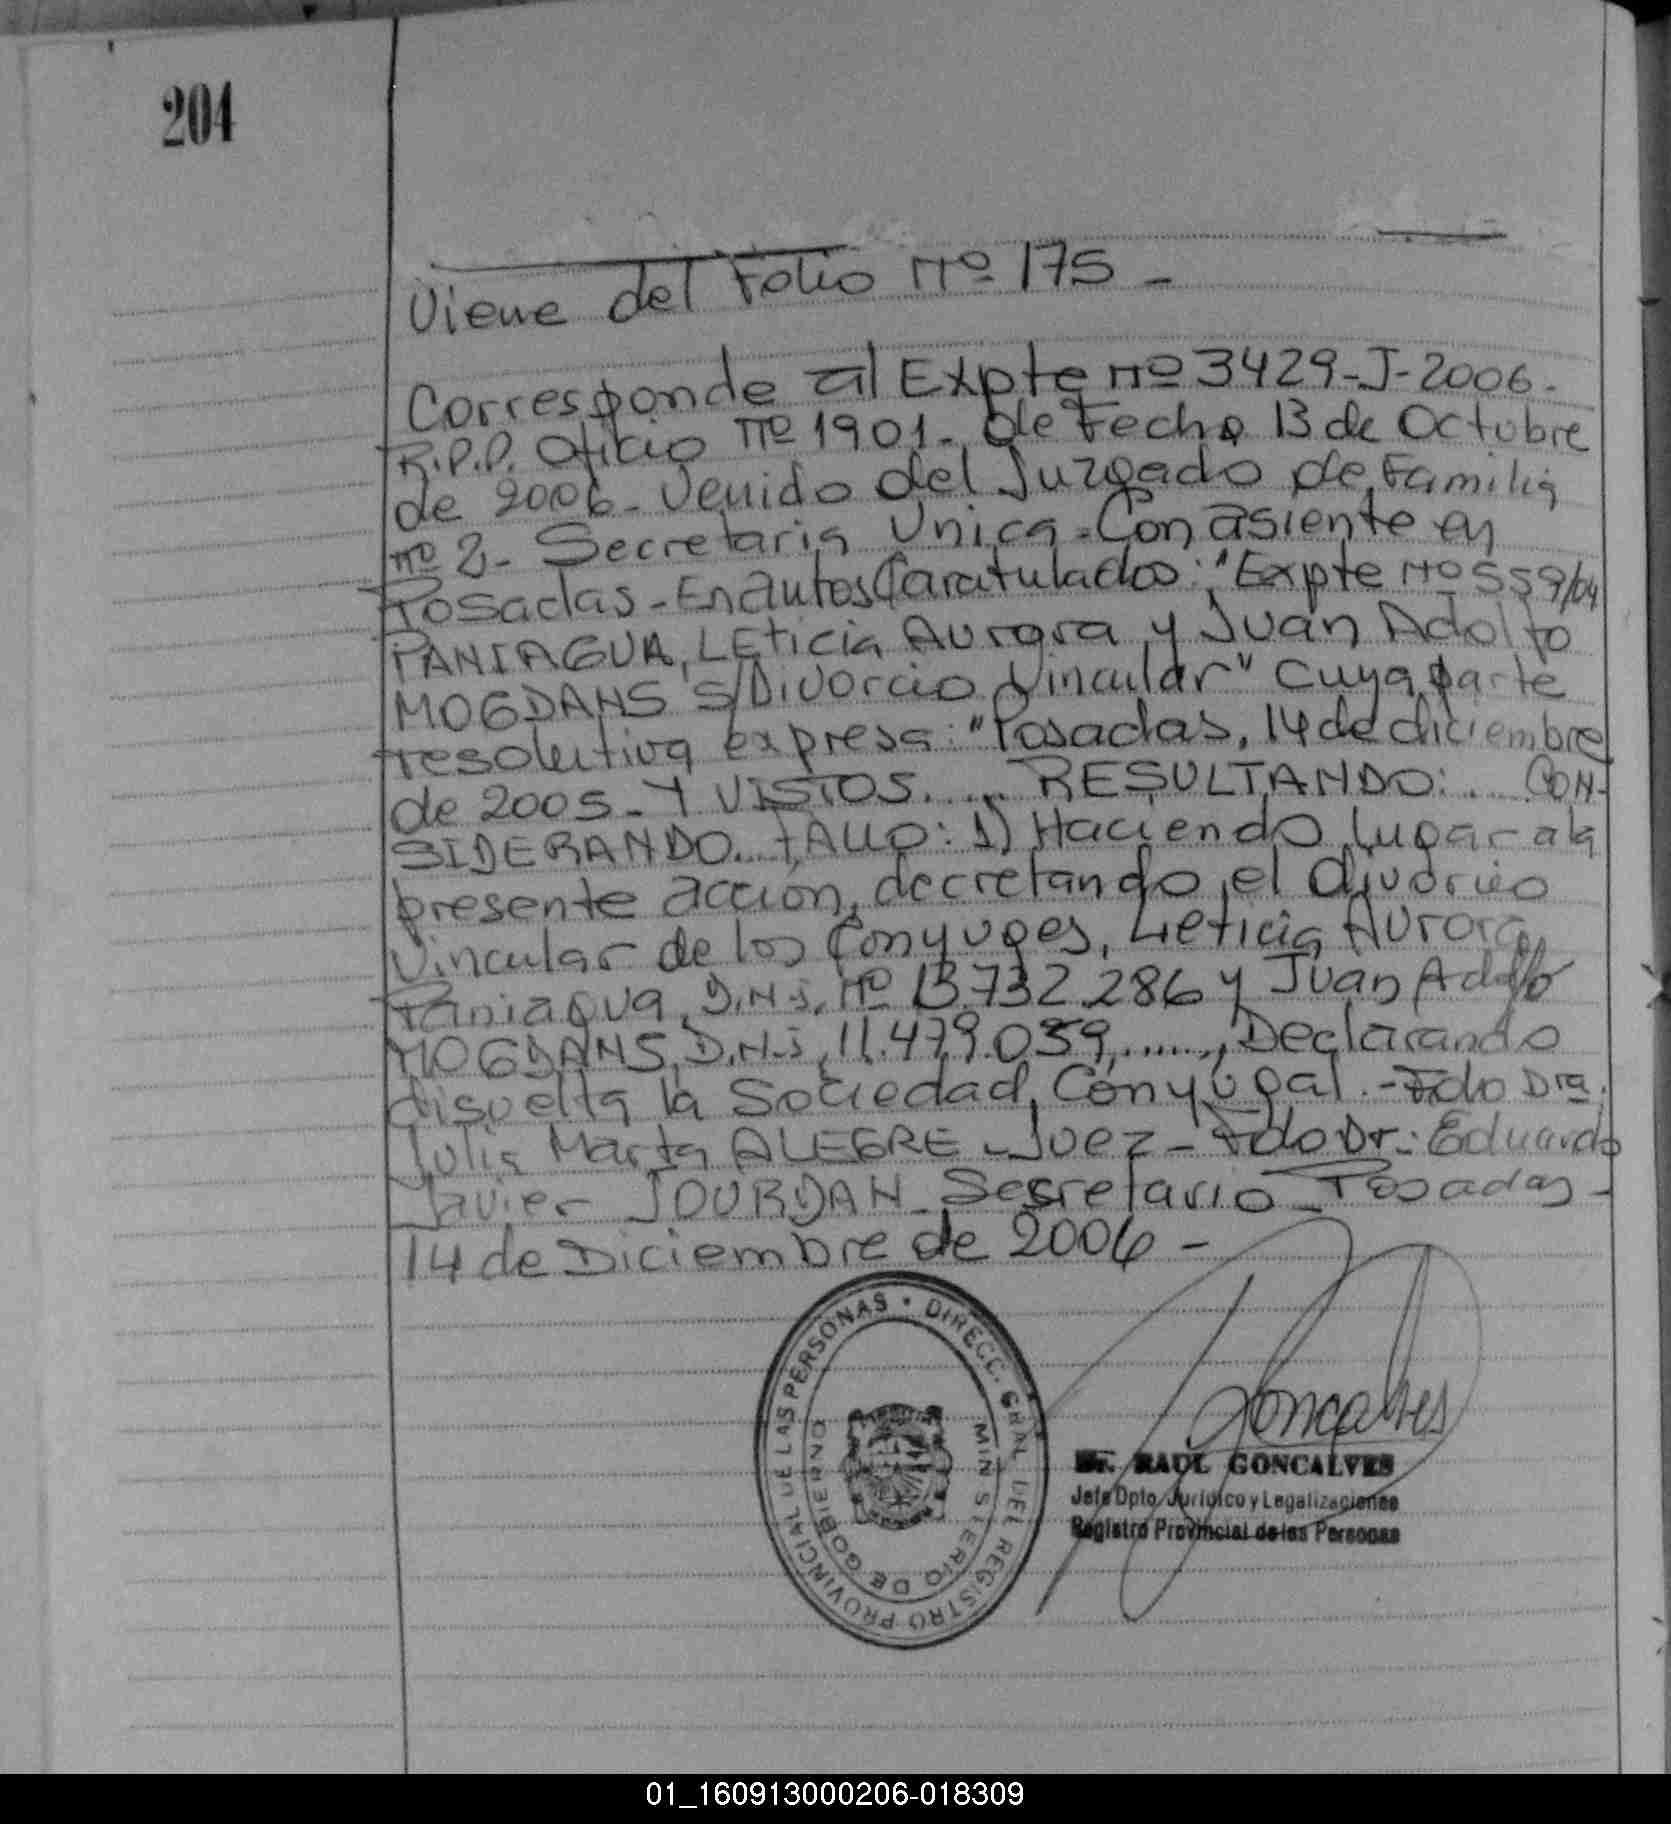 204
Viene del Folio Nº 175 -
Corresponde al Expte nº 3429-J-2006-
R.P.P. Oficio Nº 1901- de Fecha 13 de Octubre
de 2006- Venido del Juzgado de Familia
nº 2- Secretaria Unica- Con asiente en
Posadas- En autos Caratulados: "Expte Nº 559/04
PANIAGUA, LETicia Aurora y Juan Adolfo
MOGDANS S/Divorcio Vincular" Cuya parte
resolutiva expresa: "Posadas, 14 de diciembre
de 2005- Y VISTOS..... RESULTANDO:.... CON-
SIDERANDO... FALLO: 1) Haciendo lugar a la
presente acción, decretando el divorcio
Vincular de los Conyuges, Leticia Aurora
Paniagua, D.N.i. Nº 13.732.286 y Juan Adolfo
MOGDANS, D.N.i, 11.479.039,......, Declarando
disuelta la Sociedad Conyugal.- Fdo Dra.
Julia Marta ALEGRE - Juez - Fdo Dr.: Eduardo
Javier JOURDAN - Secretario - Posadas -
14 de Diciembre de 2006 -
DIRECC. GRAL DEL REGISTRO PROVINCIAL DE LAS PERSONAS
MINISTERIO DE GOBIERNO
Goncalves
Dr. RAUL GONCALVES
Jefe Dpto. Jurídico y Legalizaciones
Registro Provincial de las Personas
01_160913000206-018309